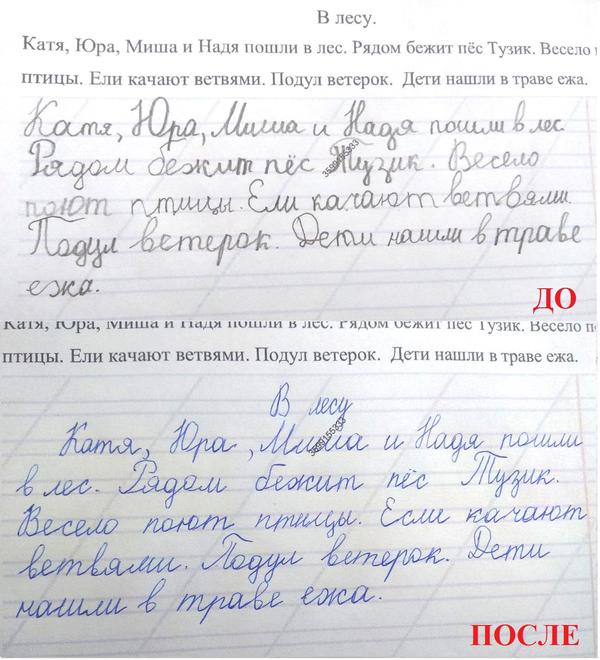 В лесу.
Катя, Юра, Миша и Надя пошли в лес. Рядом бежит пёс Тузик. Весело
птицы. Ели качают ветвями. Подул ветерок. Дети нашли в траве ежа.
Катя, Юра, Миша и Надя пошли в лес
Рядом бежит пёс Тузик. Весело
поют птицы. Ели качают ветвями.
Подул ветерок. Дети нашли в траве
ежа.
ДО
Катя, Юра, Миша и Надя пошли в лес. Рядом бежит пёс Тузик. Весело
птицы. Ели качают ветвями. Подул ветерок. Дети нашли в траве ежа.
В лесу
Катя, Юра, Миша и Надя пошли
в лес. Рядом бежит пёс Тузик.
Весело поют птицы. Если качают
ветвями. Подул ветерок. Дети
нашли в траве ежа.
ПОСЛЕ